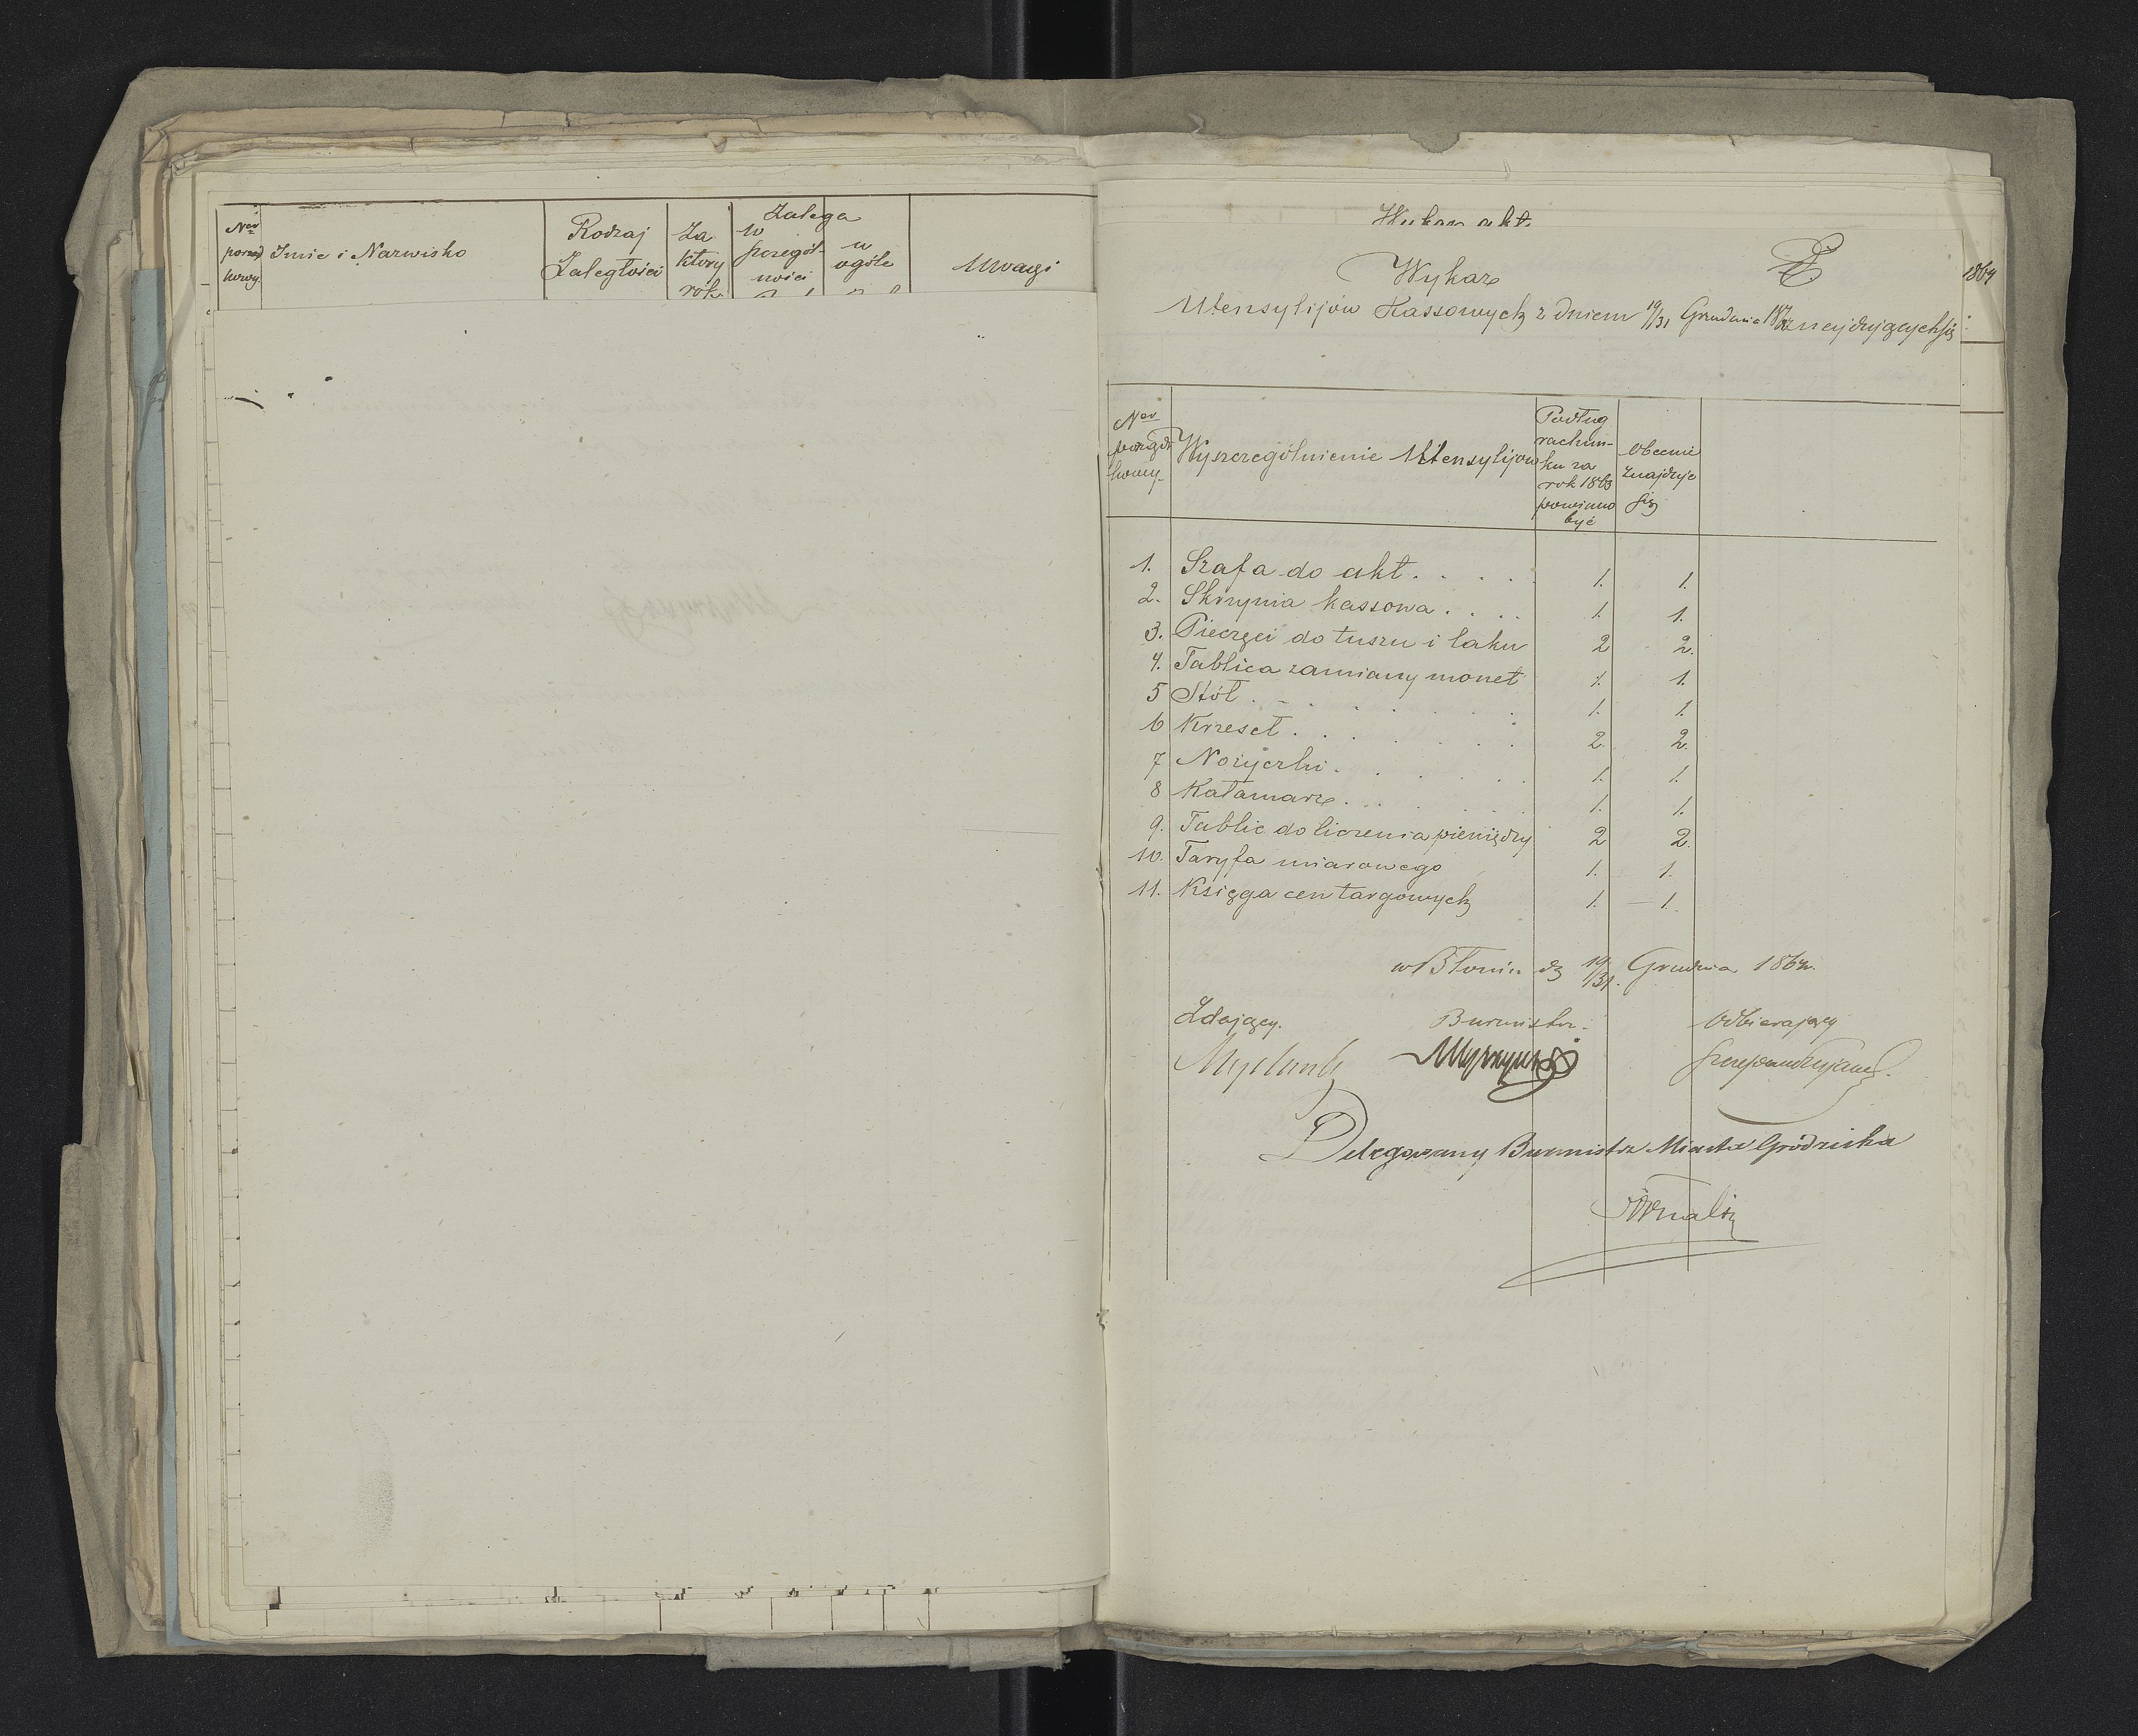 Ner porząd kowy.
Imie i Nazwisko
Rodzaj Zaległości
Za który rok
Zalega
w szczegól- ności
w ogóle
Uwagi
Wykaz akt
E
1864
Wykaz
Utensylijów Kassowych z dniem 19/31 Grudnia znajdujących się
Ner porząd kowy
Wyszczególnienie Utensylijów
Podług rachun- ku za rok 1863 powinno być
Obecnie znajduje się
1. Szafa do akt . . . . . 1. 1.
2. Skrzynia kassowa . . . . 1. 1.
3. Pieczęci do tuszu i laku 2 2.
4. Tablica zamiany monet 1. 1.
5 Stół . . . . . . . 1. 1.
6 Krzeseł . . . . . . . 2. 2.
7 Nożyczki . . . . . . 1. 1.
8 Kałamarz . . . . . . 1. 1.
9. Tablic do liczenia pieniędzy 2 2.
10. Taryfa miarowego 1. 1.
11. Księga cen targowych 1. 1.
w Błoniu d. 19/31. Grudnia
Zdający. Burmistrz. Odbierający
Delegowany Burmistrz Miasta Grodziska